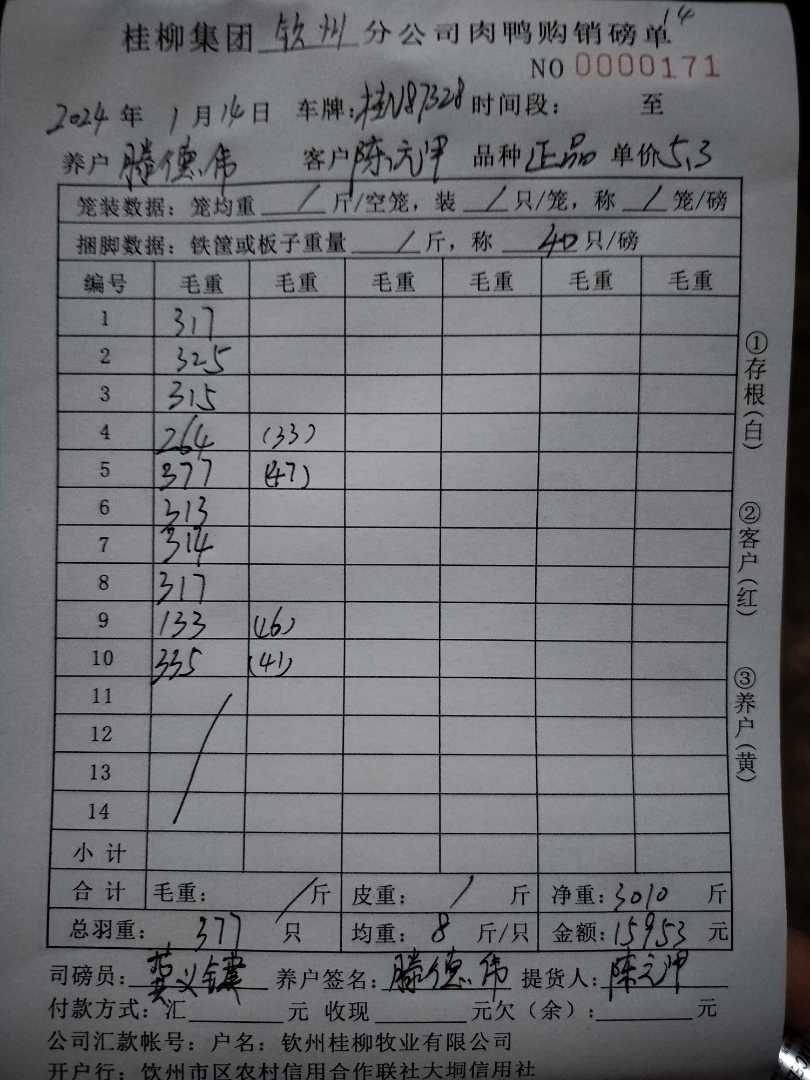 桂柳集团 钦州 分公司肉鸭购销磅单 14
NO 0000171
2024 年 1 月 14 日 车牌: 桂N87328 时间段: 至
养户 滕德伟 客户 陈元坤 品种 正品 单价 5.3
笼装数据: 笼均重 / 斤/空笼, 装 / 只/笼, 称 / 笼/磅
捆脚数据: 铁筐或板子重量 / 斤, 称 40 只/磅
编号 毛重 毛重 毛重 毛重 毛重 毛重
1 317
2 325
3 315
4 264 (33)
5 377 (47)
6 313
7 314
8 317
9 133 (16)
10 335 (41)
11
12
13
14
小计
合计 毛重: / 斤 皮重: / 斤 净重: 3010 斤
总羽重: 377 只 均重: 8 斤/只 金额: 15953 元
司磅员: 养户签名: 滕德伟 提货人: 陈元坤
付款方式: 汇 元 收现 元欠(余): 元
公司汇款帐号: 户名: 钦州桂柳牧业有限公司
开户行: 钦州市区农村信用合作联社大垌信用社
①存根(白)
②客户(红)
③养户(黄)